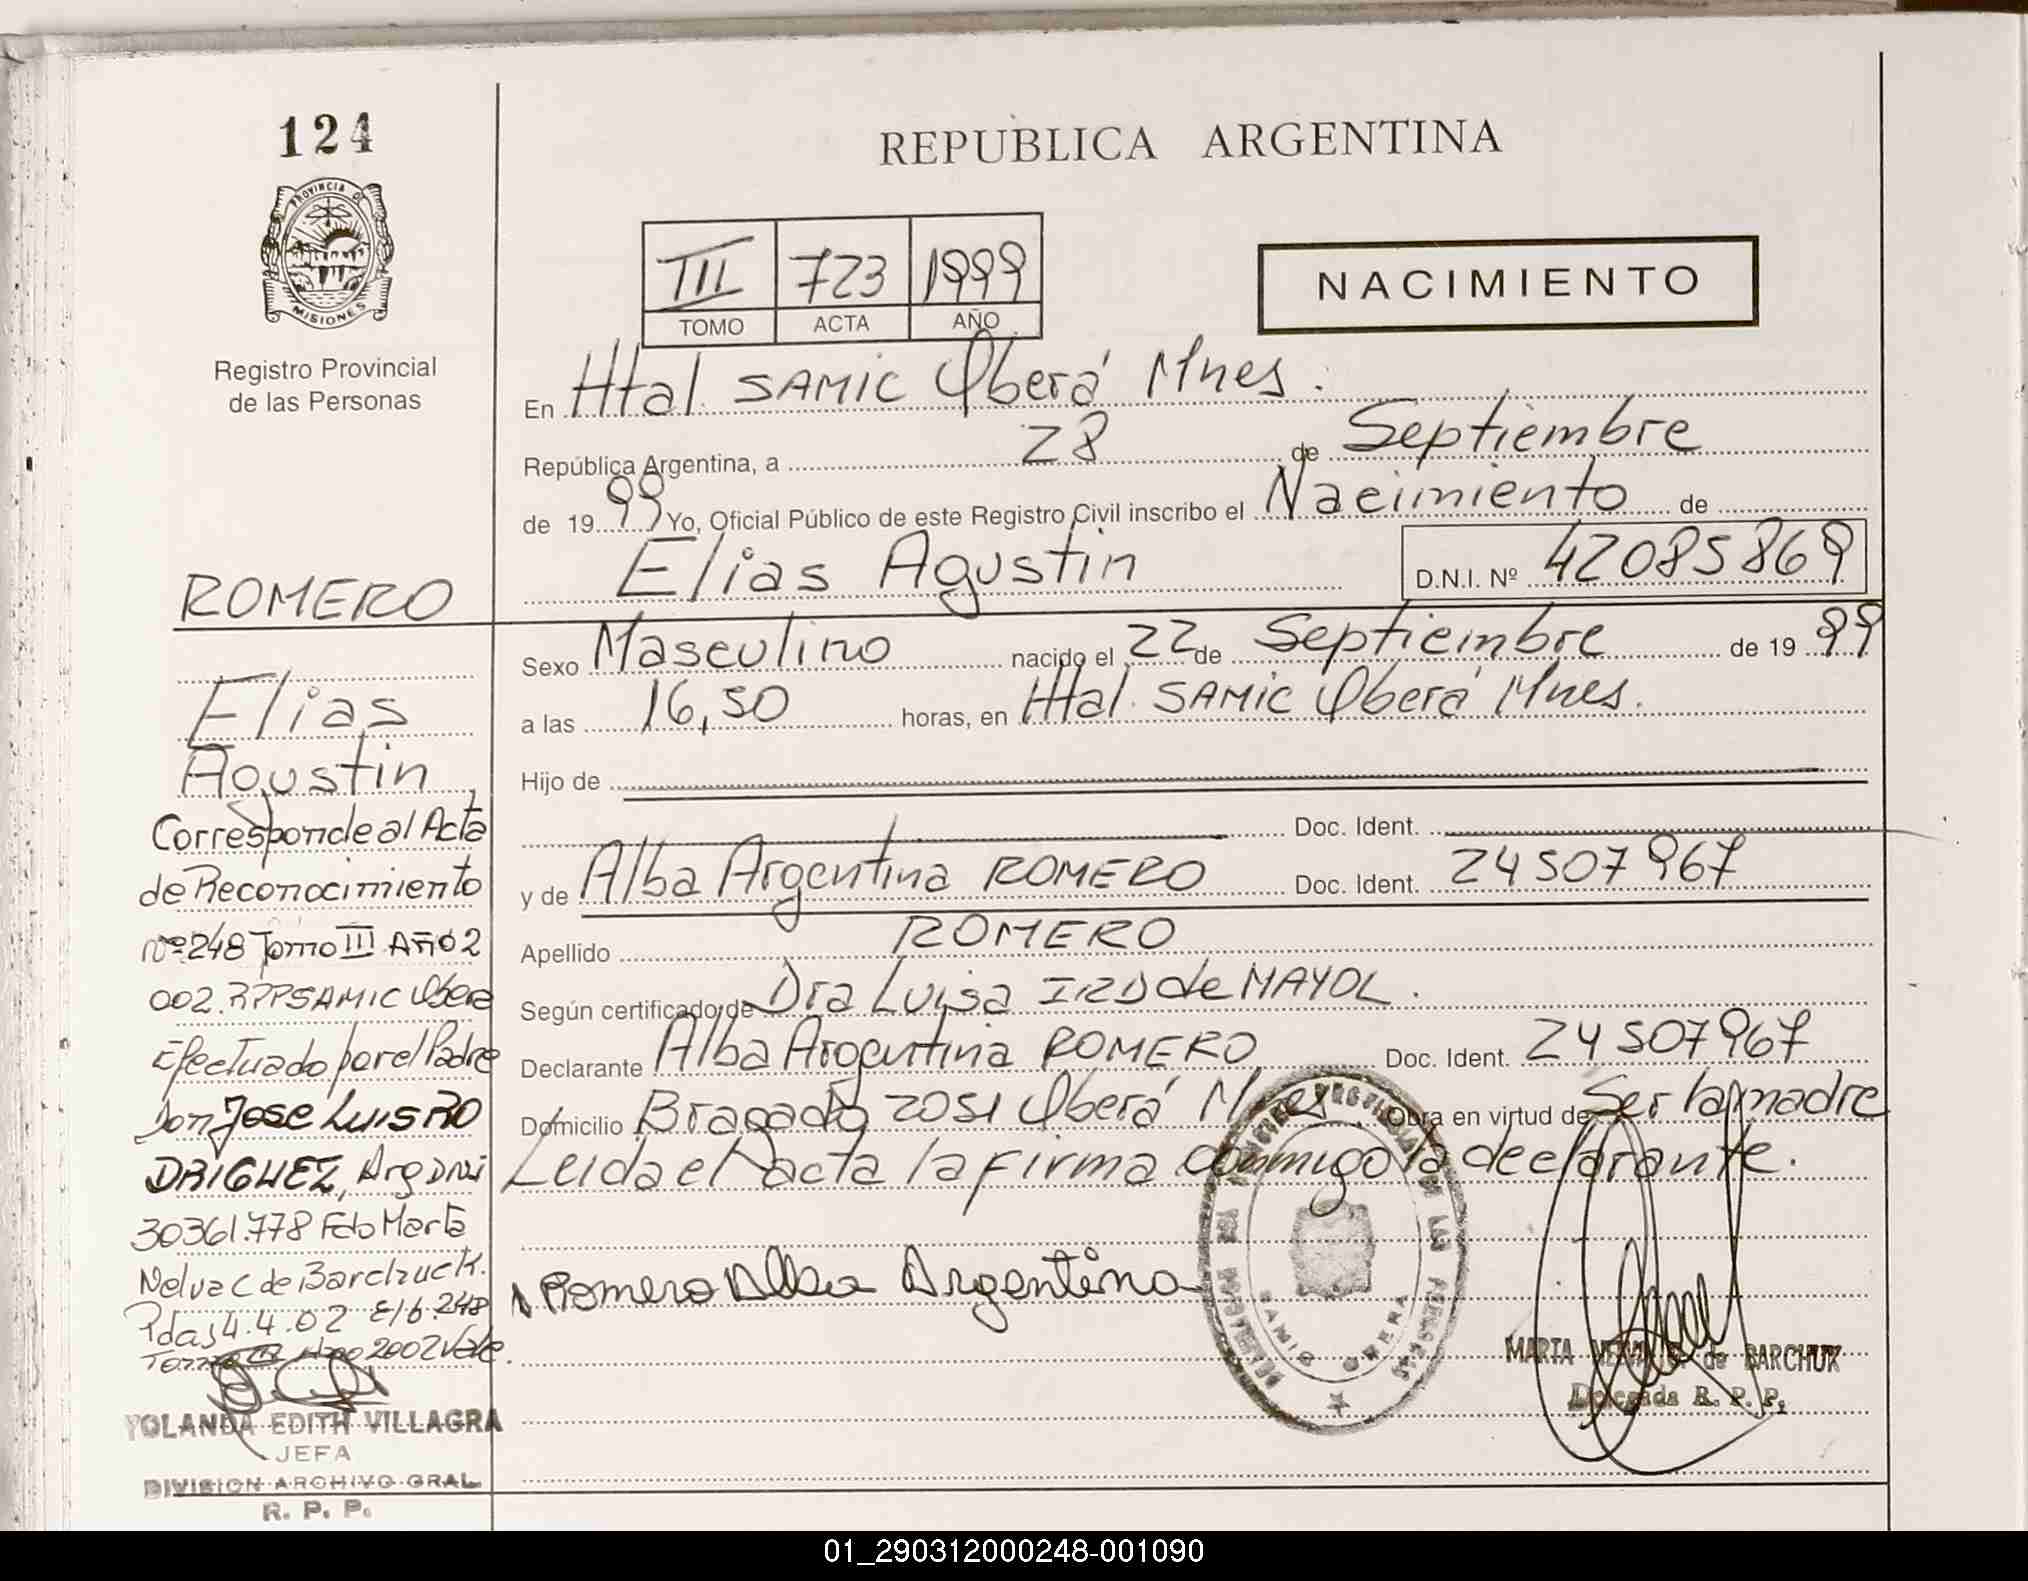 124
PROVINCIA DE
MISIONES
Registro Provincial
de las Personas
ROMERO
Elias
Agustin
Corresponde al Acta
de Reconocimiento
Nº 248 Tomo III Año 2
002. RPPSAMIC Oberá
Efectuado por el Padre
Don Jose Luis RO
DRIGUEZ, Arg DNI
30361.778 Fdo Marta
Nelva C de Barchuck.
Pdas 4.4.02
2002 Vale.
YOLANDA EDITH VILLAGRA
JEFA
DIVISION ARCHIVO GRAL
R. P. P.
REPUBLICA ARGENTINA
III 723 1999
TOMO ACTA AÑO
NACIMIENTO
En Htal. SAMIC Oberá Mnes.
República Argentina, a 28 de Septiembre
de 1999 Yo, Oficial Público de este Registro Civil inscribo el Nacimiento de
Elias Agustin D.N.I. Nº 42085869
Sexo Masculino nacido el 22 de Septiembre de 1999
a las 16,50 horas, en Htal. SAMIC Oberá Mnes.
Hijo de
Doc. Ident.
y de Alba Argentina ROMERO Doc. Ident. 24507967
Apellido ROMERO
Según certificado de Dra Luisa IRD de MAYOL.
Declarante Alba Argentina ROMERO Doc. Ident. 24507967
Domicilio Bragado 2051 Oberá Mnes. Obra en virtud de Ser la madre
Leida el acta la firma conmigo la declarante.
Romero Alba Argentina
SAMIC OBERA
MARTA NELVA C. de BARCHUK
Delegada R. P. P.
01_290312000248-001090